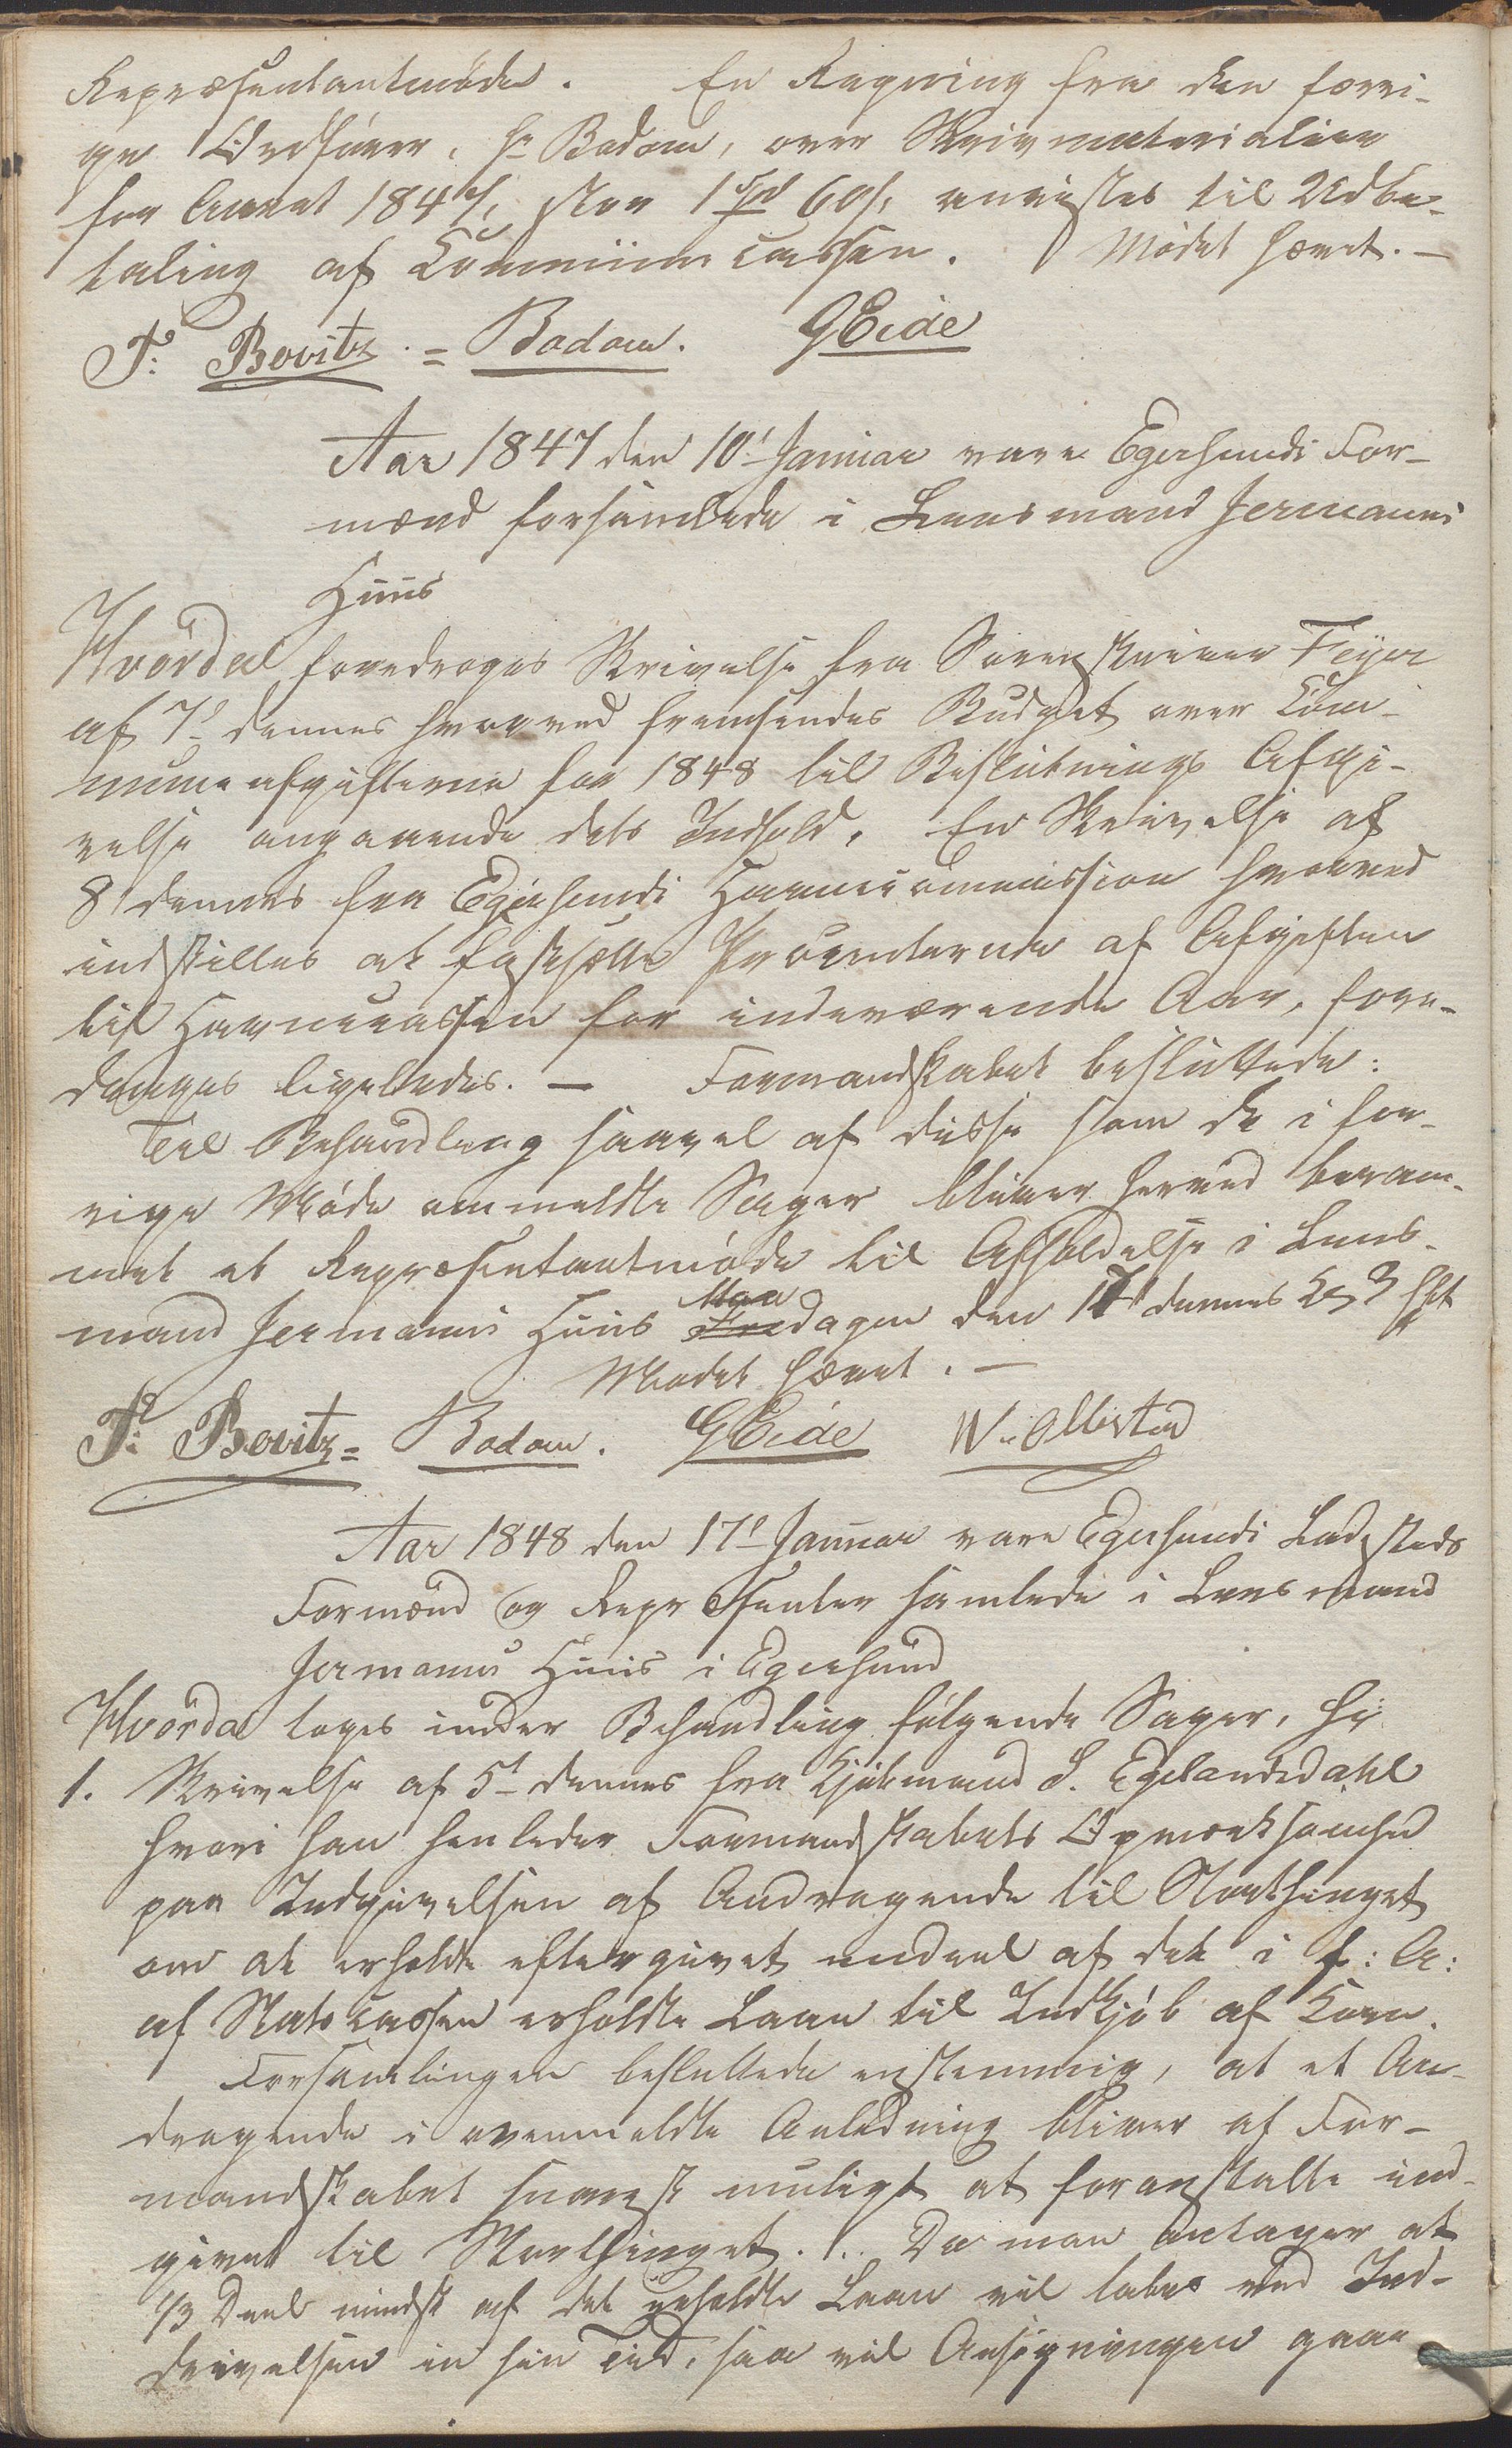 Repræsentantmøde. En Regning fra den forri-
ge Ordfører, Hr Bodom, over Skrivmaterialier
for Aaret 1847, stor 1 Spd 60 s, anvistes til Udbe-
taling af Communecassen. Mødet hævet. —
T: Bovitz = Bodom. GEide
Aar 1847 den 10' Januar vare Egersunds For-
mænd forsamlede i Lensmand Jermanns
Huus
Hvorda foredroges Skrivelse fra Sorenskriver Feyer
af 7' dennes hvorved fremsendes Budget over Com-
muneafgifterne for 1848 til Beslutnings Afgi-
velse angaaende dets Indhold. En Skrivelse af
8' dennes fra Egersunds Havnecommission hvorved
indstilles at fastsætte Procenterne af Afgiften
til Havnecassen for indeværende Aar, fore-
droges ligeledes. — Formandskabet besluttede:
Til Behandling saavel af disse som de i for-
rige Møde ommeldte Sager bliver herved beram-
met et Repræsentantmøde til Afholdelse i Lens-
mand Jermanns Huus Mandagen den 17' dennes Kl 3 Eft
Mødet hævet. —
T: Bovitz = Bodom. GEide W. Ollestad
Aar 1848 den 17' Januar vare Egersunds Ladesteds
Formænd og Repræsenter samlede i Lensmand
Jermanns Huus i Egersund
Hvorda toges under Behandling følgende Sager,
1. Skrivelse af 5' dennes fra Kjøbmand S. Egelandsdahl
hvori han henleder Formandskabets Opmærksomhed
paa Indgivelsen af Andragende til Storthinget
om at erholde eftergivet endeel af det i f: A:
af Statscassen erholdte Laan til Indkjøb af Korn.
Forsamlingen besluttede enstemmig, at et An-
dragende i ovenmeldte Anledning bliver af For-
mandskabet snarest muligt at foranstalte ind-
givet til Storthinget. Da man antager at
1/3 Deel mindst af det erholdte Laan vil tabes ved Ind-
drivelsen in sin Tid, saa vil Ansøgningen gaae